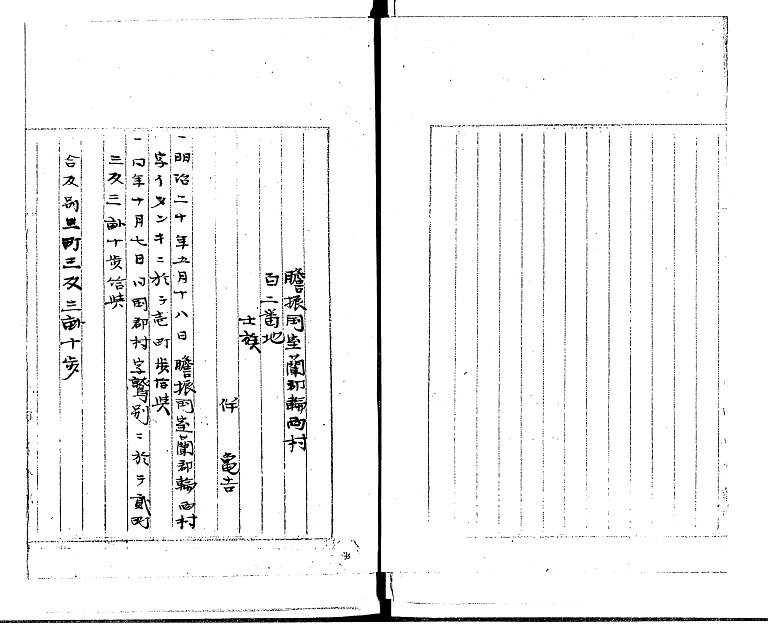 膽振国室蘭郡輪西村
百二番地
士族
仟 亀吉
一明治二十年五月十八日膽振国室蘭郡輪西村
字イタンキニ於テ壱町歩信㷠
一同年十月七日同国郡村字鷲別ニ於テ貳町
三反三畝十歩
合反別三町三反三畝十歩